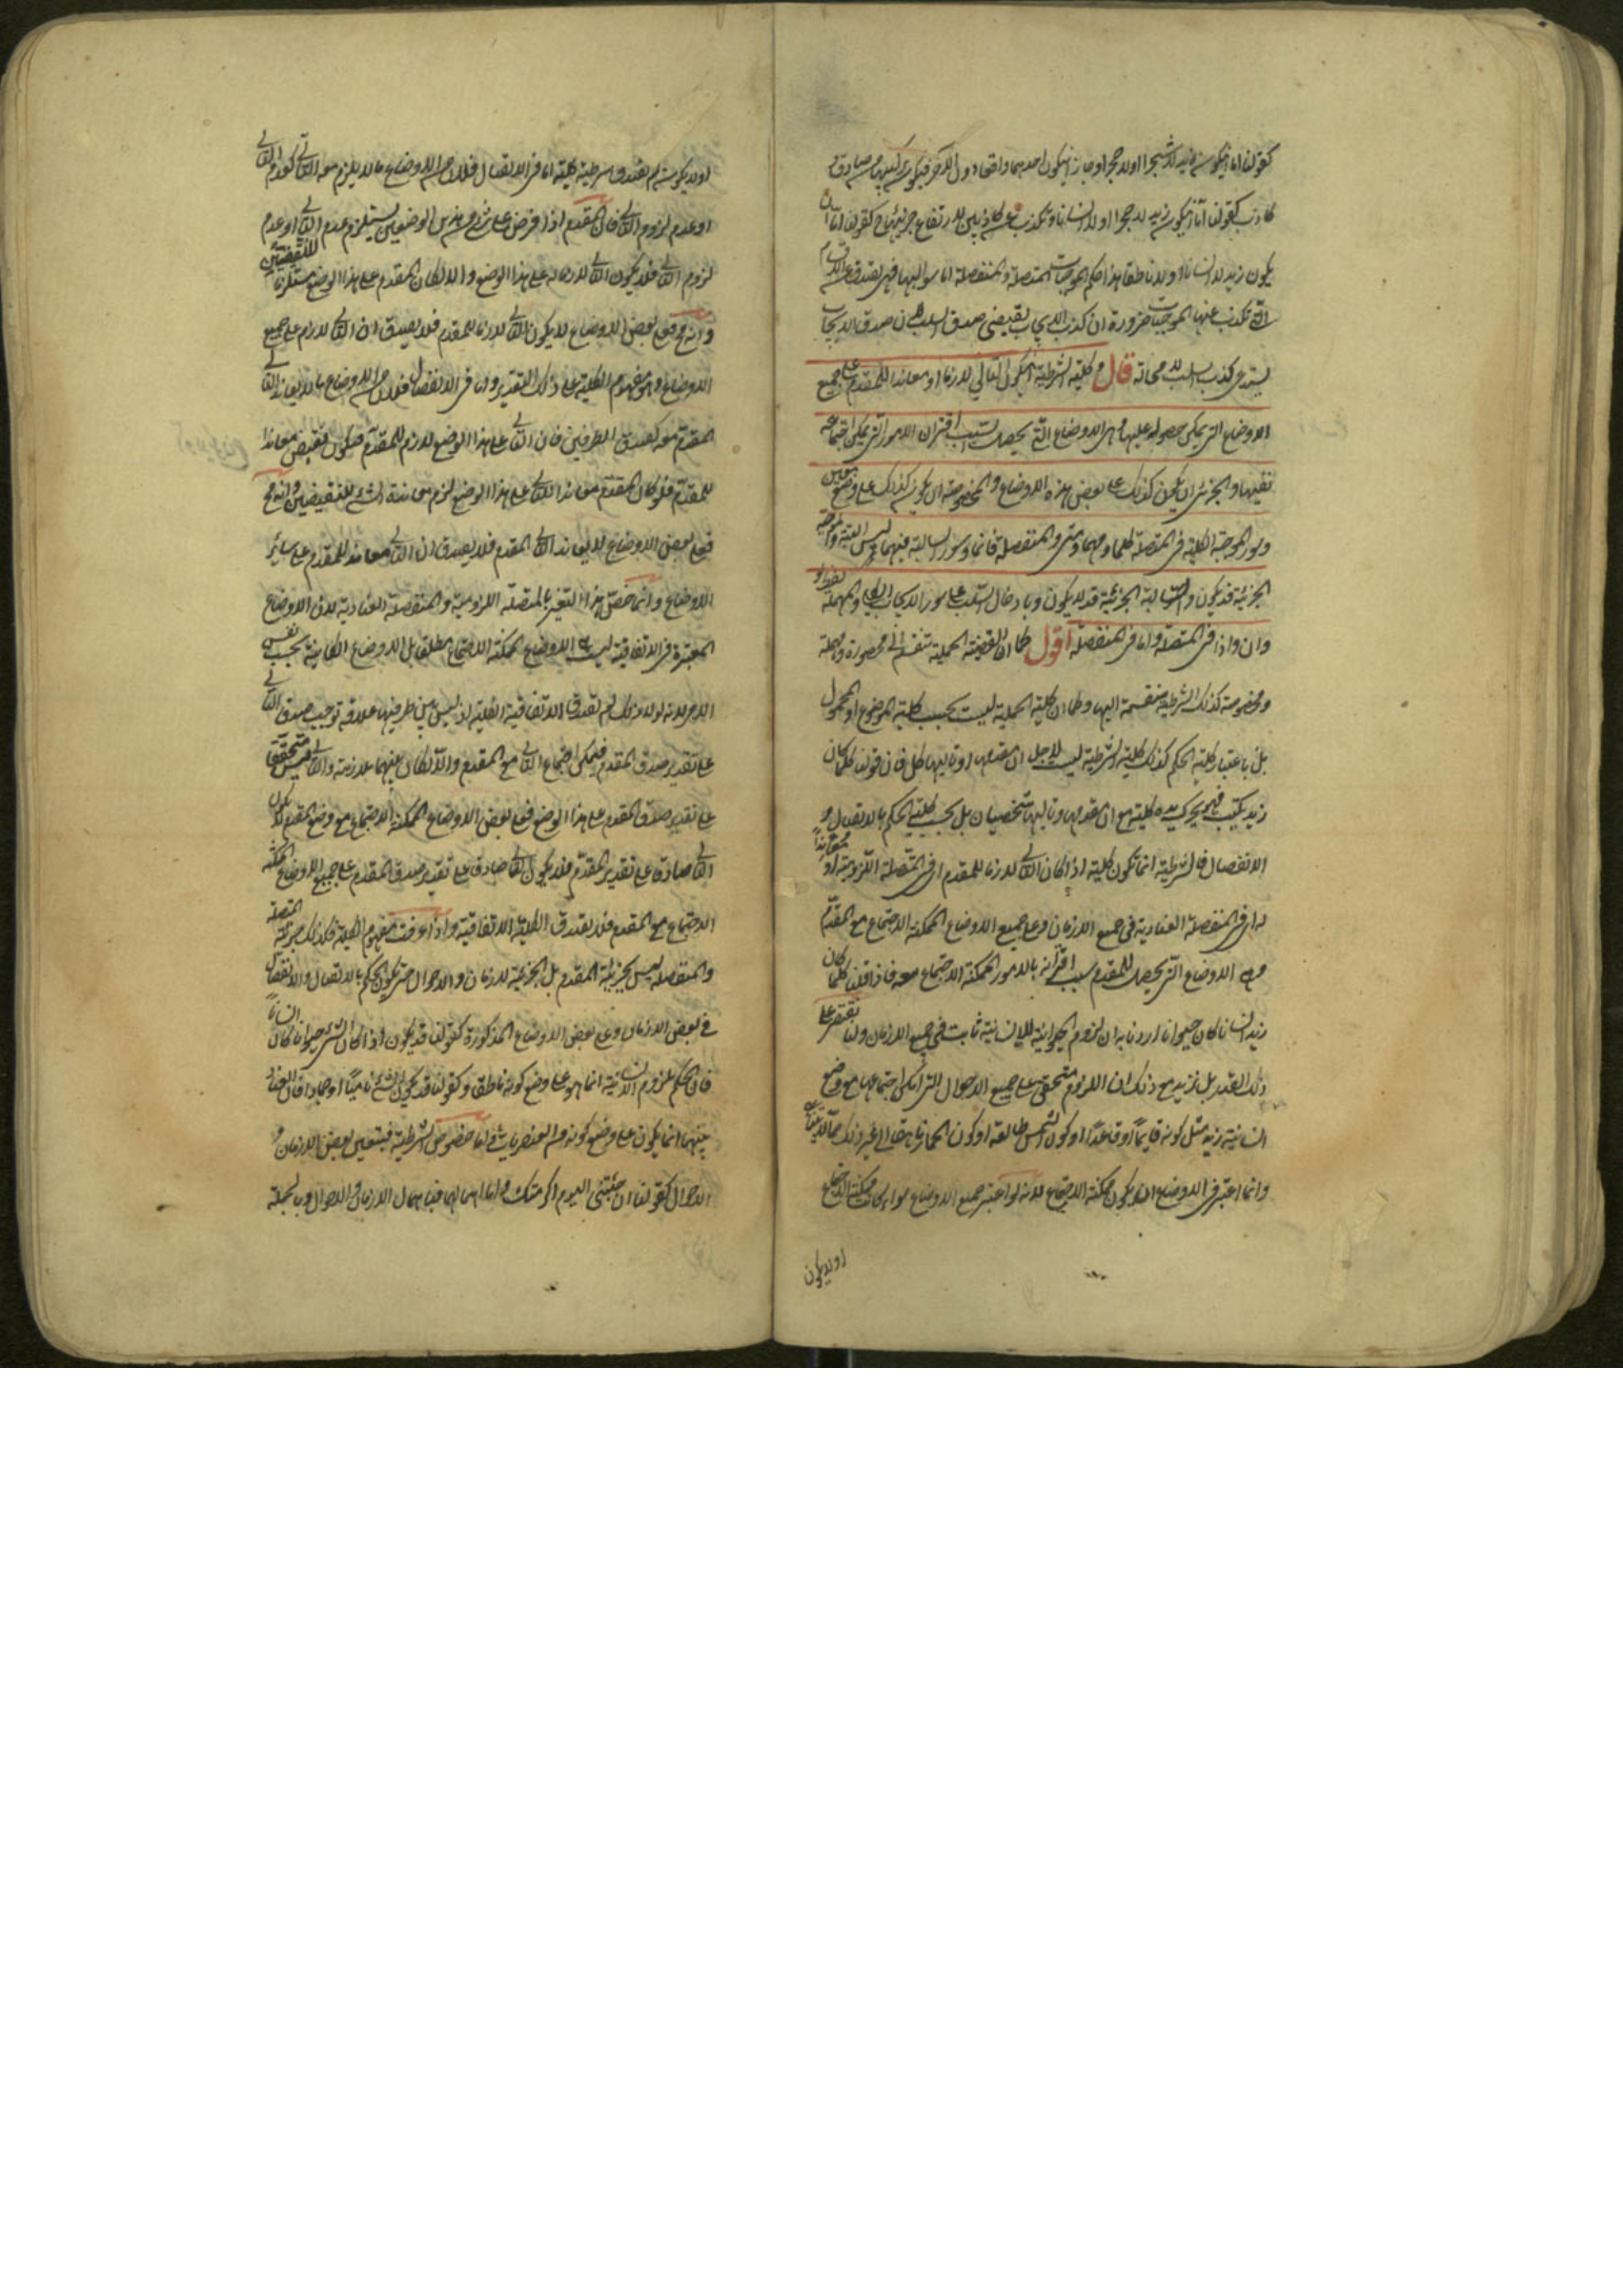 كقولنا اما ان يكون زيد لا شجرا او لا حجرا وجاز ان يكون احدهما واقعا دون الآخر فيكون تركيبها من صادق و
كاذب كقولنا اما ان يكون زيد لا حجرا او لا انسانا وتكذب عن كاذبين لارتفاع جزئيها ح كقولنا اما ان
يكون زيد لا انسانا او لا ناطقا هذا حكم الموجبات المتصلة والمنفصلة اما سوالبها فهي تصدق عن الاقسام
التي تكذب عنها الموجبات ضرورة ان كذب الايجاب يقتضي صدق السلب لان صدق الايجاب
يستدعي كذب السلب لا محالة قال وكلية الشرطية ان يكون التالي لازما او معاندا للمقدم على جميع
الاوضاع التي يمكن حصوله عليها وهي الاوضاع التي يحصل بسبب اقتران الامور التي يمكن اجتماعه
فيها والجزئي ان يكون كذلك على بعض هذه الاوضاع والمخصوصة ان يكون كذلك على وضع معين
وسور الموجبة الكلية في المتصلة كلما ومهما ومتى وفي المنفصلة دائما وسور السالبة فيهما ليس البتة والموجبة
الجزئية قد يكون والسالبة الجزئية قد لا يكون وبادخال السلب على سور الايجاب الكلي والمهملة بلفظ لو
وان واذا في المتصلة واما في المنفصلة اقول كما ان القضية الحملية تنقسم الى محصورة ومهملة
ومخصوصة كذلك الشرطية منقسمة اليها وكما ان كلية الحملية ليست بحسب كلية الموضوع او المحمول
بل باعتبار كلية الحكم كذلك كلية الشرطية ليست لاجل ان مقدمها او تاليها كلي فان قولنا كلما كان
زيد يكتب فهو يحرك يده كلية مع ان مقدمها وتاليها شخصيان بل بحسب كلية الحكم بالاتصال و
الانفصال فالشرطية انما تكون كلية اذا كان التالي لازما للمقدم اي في المتصلة اللزومية او معاندا
له اي في المنفصلة العنادية في جميع الازمان وعلى جميع الاوضاع الممكنة الاجتماع مع المقدم
وهي الاوضاع التي يحصل للمقدم بسبب اقترانه بالامور الممكنة الاجتماع معه فاذا قلنا كلما كان
زيد انسانا كان حيوانا اردنا به ان لزوم الحيوانية للانسانية ثابت في جميع الازمان ولسنا نقتصر على
ذلك القدر بل نزيد مع ذلك ان اللزوم متحقق على جميع الاحوال التي امكن اجتماعها مع وضع
انسانية زيد مثل كونه قايما او قاعدا او كون الشمس طالعة او كون الحمار ناهقا الى غير ذلك مما لا يتناهى
وانما اعتبر في الاوضاع ان يكون ممكنة الاجتماع لانه لو اعتبر جميع الاوضاع سواء كانت ممكنة الاجتماع
او لا يكون
او لا يكون لم تصدق شرطية كلية اما في الاتصال فلان من الاوضاع ما لا يلزم معه التالي كعدم التالي
او عدم لزوم التالي فان المقدم اذا فرض على شيء من هذين الوضعين يستلزم عدم التالي او عدم
لزوم التالي فلا يكون التالي لازما له على هذا الوضع والا لكان المقدم على هذا الوضع مستلزما للنقيضين
وانه مح فعلى بعض الاوضاع لا يكون التالي لازما للمقدم فلا يصدق ان التالي لازم على جميع
الاوضاع وهو مفهوم الكلية على ذلك التقدير واما في الانفصال فلان من الاوضاع ما لا يعاند التالي
المقدم معه كصدق الطرفين فان التالي على هذا الوضع لازم للمقدم فيكون نقيضه معاندا
للمقدم فلو كان المقدم معاندا للتالي على هذا الوضع لزم معاندة الشيء للنقيضين وانه مح
فعلى بعض الاوضاع لا يعاند التالي المقدم فلا يصدق ان التالي معاند للمقدم على سائر
الاوضاع وانما خص هذا التفسير بالمتصلة اللزومية والمنفصلة العنادية لان الاوضاع
المعتبرة في الاتفاقية ليست هي الاوضاع الممكنة الاجتماع مطلقا بل الاوضاع الكائنة بحسب نفس
الامر لانه لولا ذلك لم تصدق الاتفاقية الكلية اذ ليس بين طرفيها علاقة توجب صدق التالي
على تقدير صدق المقدم فيمكن اجتماع عدم التالي مع المقدم والا لكان بينهما ملازمة والتالي ليس متحققا
على تقدير صدق المقدم على هذا الوضع فعلى بعض الاوضاع الممكنة الاجتماع مع وضع المقدم لا يكون
التالي صادقا على تقدير المقدم فلا يكون التالي صادقا على تقدير صدق المقدم على جميع الاوضاع الممكنة
الاجتماع مع المقدم فلا تصدق الكلية الاتفاقية واذا عرفت مفهوم الكلية فكذلك جزئية المتصلة
والمنفصلة ليس بجزئية المقدم بل بجزئية الازمان والاحوال حتى يكون الحكم بالاتصال والانفصال
في بعض الازمان وعلى بعض الاوضاع المذكورة كقولنا قد يكون اذا كان الشيء حيوانا كان انسانا
فان الحكم بلزوم الانسانية انما هو على وضع كونه ناطقا وكقولنا قد يكون الشيء ناميا او جمادا فان العناد
بينهما انما يكون على وضع كونه من العنصريات واما خصوص الشرطية فبتعيين بعض الازمان و
الاحوال كقولنا ان جئتني اليوم اكرمتك واما اهمالها فباهمال الازمان والاحوال وبالجملة